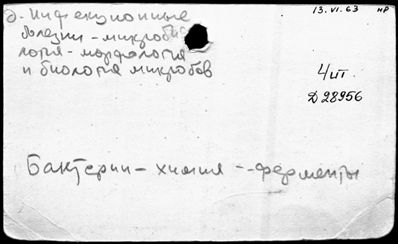 13.VI.63 нр
д. Инфекционные
болезни - микробио
логия - морфология
и биология микробов
4шт.
Д 28956
Бактерии - химия - ферменты